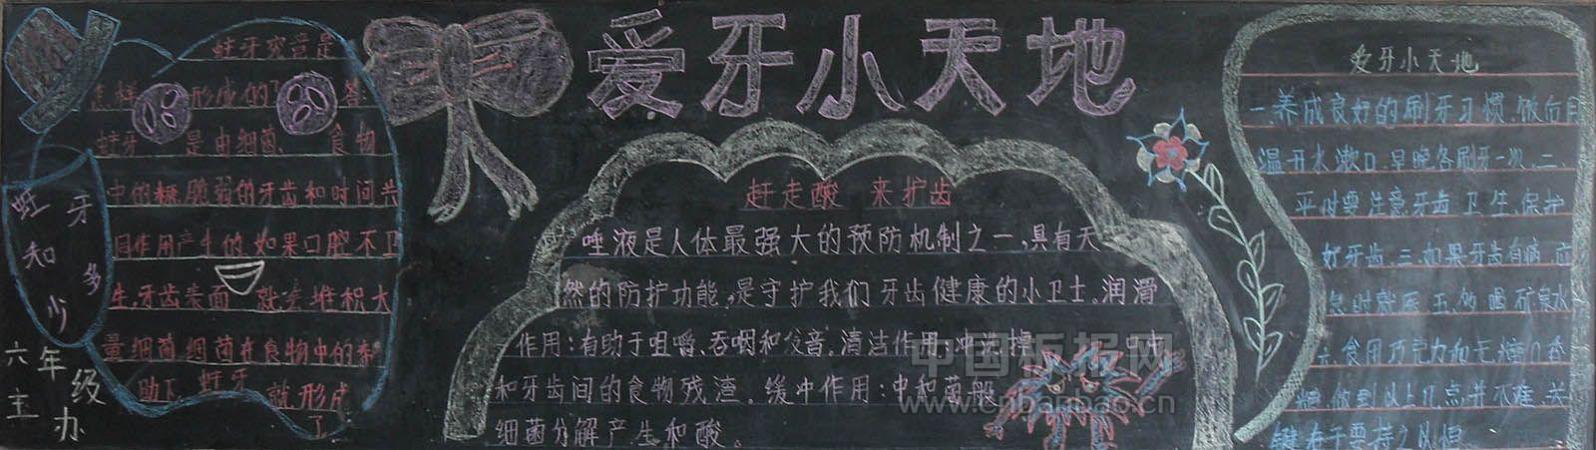 爱牙小天地
蛀牙究竟是
怎样 形成的? 答
蛀牙 是由细菌、 食物
中的糖脆弱的牙齿和时间共
同作用产生的.如果口腔不卫
生,牙齿表面 就会堆积大
量细菌细菌在食物中的
助下 蛀牙 就形成
了
蛀牙
知多少
六年级
主办
赶走酸 来护齿
唾液是人体最强大的预防机制之一,具有天
然的防护功能,是守护我们牙齿健康的小卫士。润滑
作用:有助于咀嚼、吞咽和发音。清洁作用:冲洗掉 口中
和牙齿间的食物残渣。缓冲作用:中和菌般
细菌分解产生和酸。
爱牙小天地
一.养成良好的刷牙习惯,饭后用
温开水漱口.早晚各刷牙一次.二、
平时要注意牙齿卫生,保护
好牙齿.三.如果牙齿有病,应
及时就医.五.饮喝矿泉水
六.食用巧克力和无糖口香
糖.做到以上几点并不难,关
键在于要持之以恒
中国板报网
www.cnbanbao.cn